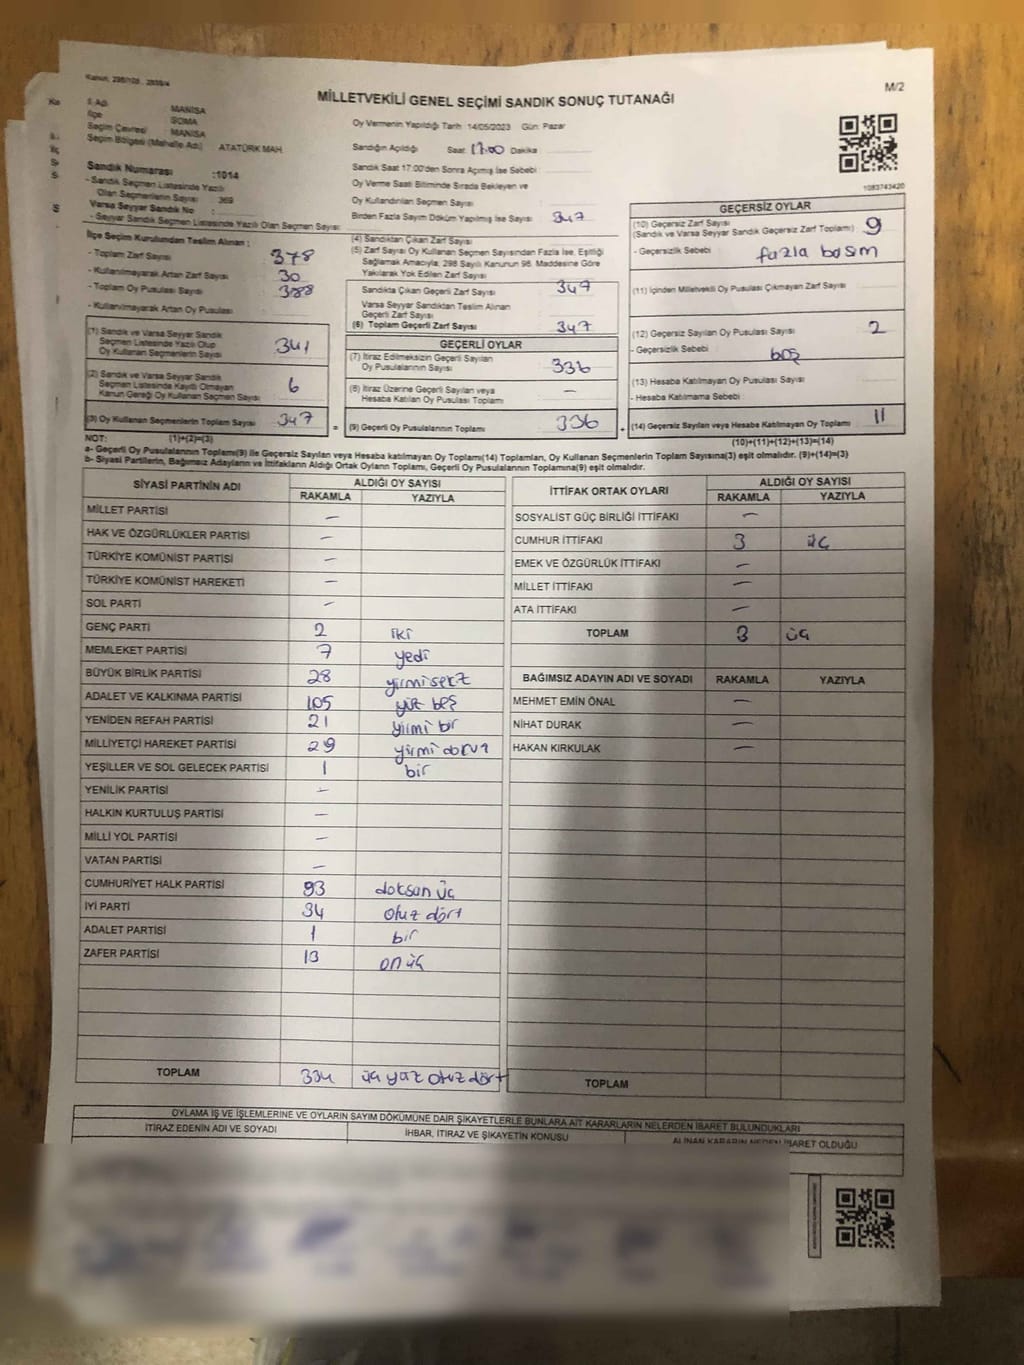 Kanun: 298/105 , 2839/4
M/2
MİLLETVEKİLİ GENEL SEÇİMİ SANDIK SONUÇ TUTANAĞI
İl Adı MANİSA
İlçe SOMA
Seçim Çevresi MANİSA
Seçim Bölgesi (Mahalle Adı) ATATÜRK MAH.
Sandık Numarası :1014
- Sandık Seçmen Listesinde Yazılı
Olan Seçmenlerin Sayısı 369
Varsa Seyyar Sandık No :
- Seyyar Sandık Seçmen Listesinde Yazılı Olan Seçmen Sayısı:
İlçe Seçim Kurulundan Teslim Alınan :
- Toplam Zarf Sayısı 378
- Kullanılmayarak Artan Zarf Sayısı 30
- Toplam Oy Pusulası Sayısı
- Kullanılmayarak Artan Oy Pusulası
(1) Sandık ve Varsa Seyyar Sandık
Seçmen Listesinde Yazılı Olup
Oy Kullanan Seçmenlerin Sayısı 341
(2) Sandık ve Varsa Seyyar Sandık
Seçmen Listesinde Kayıtlı Olmayan
Kanun Gereği Oy Kullanan Seçmen Sayısı 6
(3) Oy Kullanan Seçmenlerin Toplam Sayısı 347 =
Oy Vermenin Yapıldığı Tarih :14/05/2023 Gün: Pazar
Sandığın Açıldığı Saat: 17:00 Dakika
Sandık Saat 17:00'den Sonra Açılmış İse Sebebi :
Oy Verme Saati Bitiminde Sırada Bekleyen ve
Oy Kullandırılan Seçmen Sayısı
Birden Fazla Sayım Döküm Yapılmış İse Sayısı 347
(4) Sandıktan Çıkan Zarf Sayısı
(5) Zarf Sayısı Oy Kullanan Seçmen Sayısından Fazla İse, Eşitliği
Sağlamak Amacıyla, 298 Sayılı Kanunun 98. Maddesine Göre
Yakılarak Yok Edilen Zarf Sayısı
Sandıkta Çıkan Geçerli Zarf Sayısı 347
Varsa Seyyar Sandıktan Teslim Alınan
Geçerli Zarf Sayısı
(6) Toplam Geçerli Zarf Sayısı 347
GEÇERLİ OYLAR
(7) İtiraz Edilmeksizin Geçerli Sayılan
Oy Pusulalarının Sayısı 336
(8) İtiraz Üzerine Geçerli Sayılan veya
Hesaba Katılan Oy Pusulası Toplamı —
(9) Geçerli Oy Pusulalarının Toplamı 336 +
1083743420
GEÇERSİZ OYLAR
(10) Geçersiz Zarf Sayısı 9
(Sandık ve Varsa Seyyar Sandık Geçersiz Zarf Toplamı)
- Geçersizlik Sebebi fazla basım
(11) İçinden Milletvekili Oy Pusulası Çıkmayan Zarf Sayısı
(12) Geçersiz Sayılan Oy Pusulası Sayısı 2
- Geçersizlik Sebebi boş
(13) Hesaba Katılmayan Oy Pusulası Sayısı
- Hesaba Katılmama Sebebi
(14) Geçersiz Sayılan veya Hesaba Katılmayan Oy Toplamı 11
NOT: (1)+(2)=(3) (10)+(11)+(12)+(13)=(14)
a- Geçerli Oy Pusulalarının Toplamı(9) ile Geçersiz Sayılan veya Hesaba Katılmayan Oy Toplamı(14) Toplamları, Oy Kullanan Seçmenlerin Toplam Sayısına(3) eşit olmalıdır. (9)+(14)=(3)
b- Siyasi Partilerin, Bağımsız Adayların ve İttifakların Aldığı Ortak Oyların Toplamı, Geçerli Oy Pusulalarının Toplamına(9) eşit olmalıdır.
SİYASİ PARTİNİN ADI ALDIĞI OY SAYISI
RAKAMLA YAZIYLA
MİLLET PARTİSİ —
HAK VE ÖZGÜRLÜKLER PARTİSİ —
TÜRKİYE KOMÜNİST PARTİSİ —
TÜRKİYE KOMÜNİST HAREKETİ —
SOL PARTİ —
GENÇ PARTİ 2 iki
MEMLEKET PARTİSİ 7 yedi
BÜYÜK BİRLİK PARTİSİ 28 yirmisekiz
ADALET VE KALKINMA PARTİSİ 105 yüz beş
YENİDEN REFAH PARTİSİ 21 yirmi bir
MİLLİYETÇİ HAREKET PARTİSİ 29 yirmi dokuz
YEŞİLLER VE SOL GELECEK PARTİSİ 1 bir
YENİLİK PARTİSİ —
HALKIN KURTULUŞ PARTİSİ —
MİLLİ YOL PARTİSİ —
VATAN PARTİSİ —
CUMHURİYET HALK PARTİSİ 93 doksan üç
İYİ PARTİ 34 otuz dört
ADALET PARTİSİ 1 bir
ZAFER PARTİSİ 13 on üç
TOPLAM 334 üç yüz otuz dört
İTTİFAK ORTAK OYLARI ALDIĞI OY SAYISI
RAKAMLA YAZIYLA
SOSYALİST GÜÇ BİRLİĞİ İTTİFAKI —
CUMHUR İTTİFAKI 3 üç
EMEK VE ÖZGÜRLÜK İTTİFAKI —
MİLLET İTTİFAKI —
ATA İTTİFAKI —
TOPLAM 3 üç
BAĞIMSIZ ADAYIN ADI VE SOYADI RAKAMLA YAZIYLA
MEHMET EMİN ÖNAL —
NİHAT DURAK —
HAKAN KIRKULAK —
TOPLAM
OYLAMA İŞ VE İŞLEMLERİNE VE OYLARIN SAYIM DÖKÜMÜNE DAİR ŞİKAYETLERLE BUNLARA AİT KARARLARIN NELERDEN İBARET BULUNDUKLARI
İTİRAZ EDENİN ADI VE SOYADI İHBAR, İTİRAZ VE ŞİKAYETİN KONUSU ALINAN KARARIN NEDEN İBARET OLDUĞU